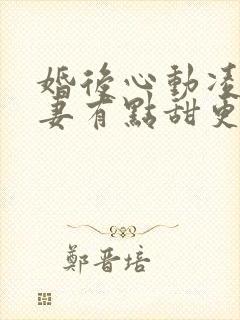 婚後心動凌
妻有點甜更
鄭晋培